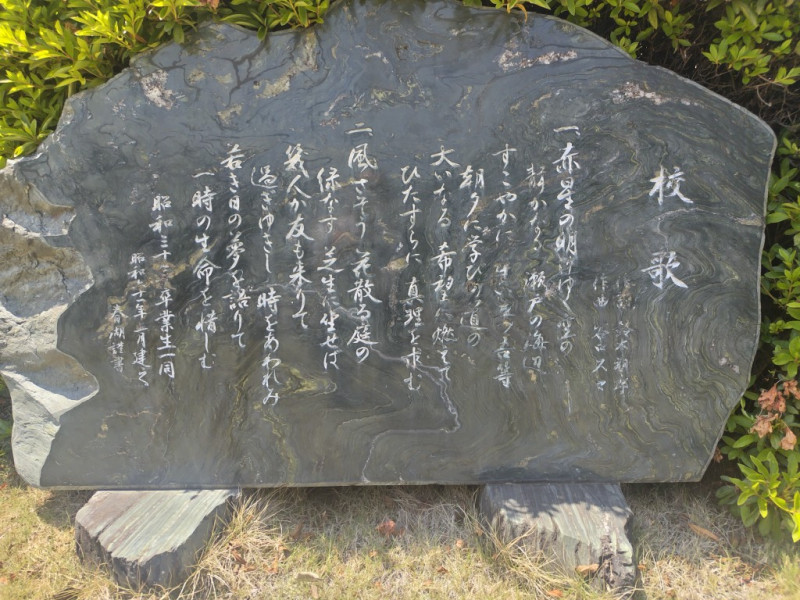 校歌
作詞
作曲
一、赤星の明けゆく空の
静かなる 瀬戸の海辺
すこやかに 生い立つ吾等
朝夕に学びの道の
大いなる 希望に燃えて
ひたすらに 真理を求む
二、風さそう 花散る庭の
緑なす 芝生に坐せば
幾人か友も来りて
過ぎゆきし 時をあわれみ
若き日の夢を語りて
一時の生命を惜しむ
昭和三十 卒業生一同
昭和 年 月建之
春